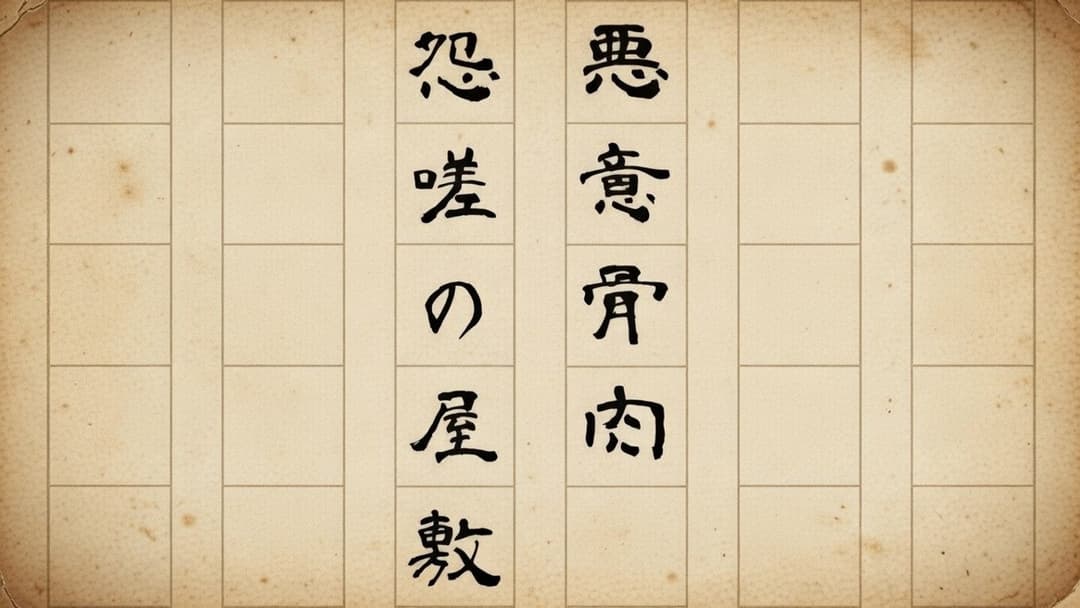 悪意骨肉
怨嗟の屋敷